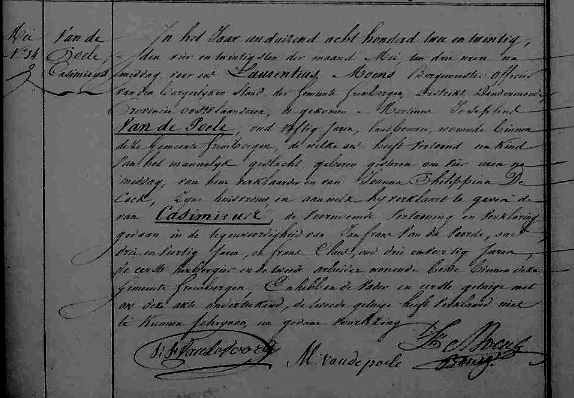 Mei
N° 34
Van de
Poele
Casimirus
In het Jaar een duizend acht honderd twee en twintig,
den vier en twintigsten der maand Mei, ten drie uren na
middag voor ons Laurentius Moens Borgemeester officier
van den Borgerlijken Stand der gemeente Grembergen, District Dendermonde
Provincie oostvlaanderen, is gekomen Martinus Josephus
Van de Poele, oud vijftig Jaren, landbouwer, wonende binnen
deze Gemeente Grembergen, de welke ons heeft vertoond een kind
van het mannelijk geslacht geboren gisteren om vier uren na
middag, van hem verklaarder en van Joanna Philippina De
Cock, zijne huisvrouw en aan welk hij verklaart te geven de
van Casimirus, de voornoemde vertooning en verklaring
gedaan in de tegenwoordigheid van Jan frans Van de Voorde, oud
drie en veertig Jaren, en frans Claus, oud drie en dertig Jaren,
de eerste herbergier en de tweede arbeider wonende beide binnen deze
gemeente Grembergen, En hebben de vader en eerste getuige met
ons deze akte onderteekend, de tweede getuige heeft verklaard niet
te kunnen schrijven, na gedane voorlezing
M: vandepoele
Moens